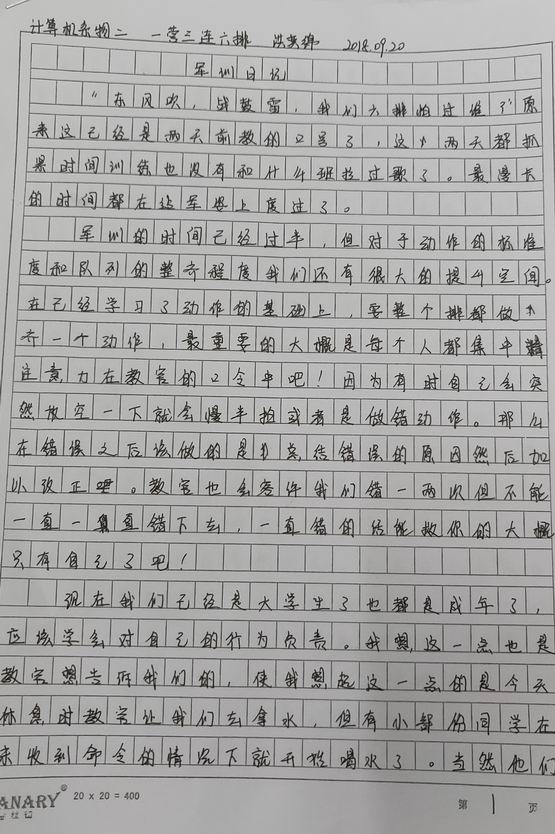 计算机类物二 一营三连六排 洪英锦 2018.09.20
军训日记
"东风吹，战鼓雷，我们六排怕过谁？"原
来这已经是两天前教的口号了，这个两天都抓
紧时间训练也没有和什么班拉过歌了。最漫长
的时间都在站军姿上度过了。
军训的时间已经过半，但对于动作的标准
度和队列的整齐程度我们还有很大的提升空间。
在已经学习了动作的基础上，要整个排都做
齐一个动作，最重要的大概是每个人都集中精
注意力在教官的口令中吧！因为有时自己会突
然放空一下就会慢半拍或者是做错动作。那么
在错误之后该做的是总结错误的原因然后加
以改正吧。教官也会容许我们错一两次但不能
一直一直错下去，一直错的结能救你的大概
只有自己了吧！
现在我们已经是大学生了也都是成年了，
应该学会对自己的行为负责。我想这一点也是
教官想告诉我们的，使我想起这一点的是今天
休息时教官让我们去拿水，但有小部份同学在
未收到命令的情况下就开始喝水了。当然他们
ANARY® 20 x 20 = 400 第 1 页